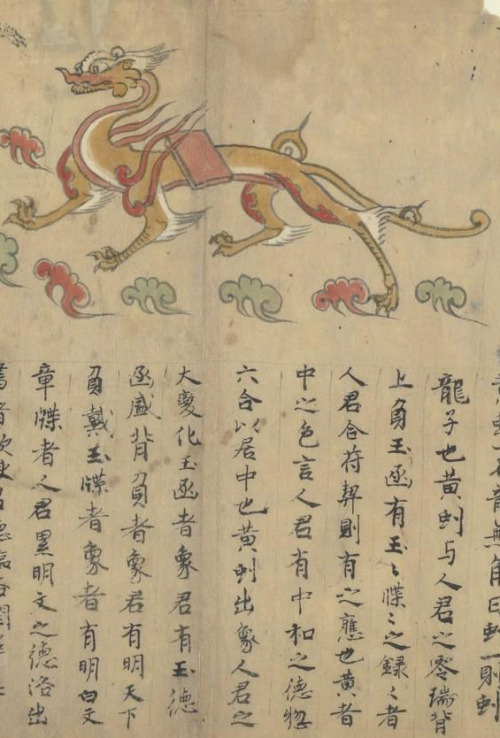 無角曰虬一則虬
龍子也黄虬与人君之零瑞背
上負玉函有玉〻牒〻之録〻者
人君合符契則有之應也黄者
中之色言人君有中和之德惣
六合以居中也黄虬出象人君之
大變化玉函者象君有玉德
函盛背負者象君有明天下
負戴玉牒者象者有明白文
章牒者人君累明文之德洛出